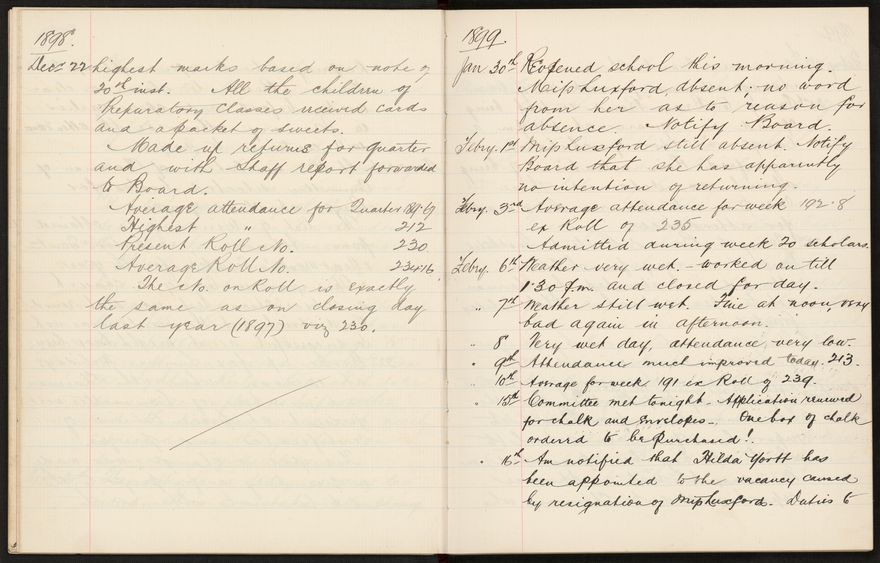 1898.
Decr 22 highest marks based on note of
20th inst. All the children of
Preparatory Classes received cards
and a packet of sweets.
Made up returns for quarter
and with Staff report forwarded
to Board.
Average attendance for Quarter
Highest " 212
Present Roll No. 230
Average Roll No. 234.16
The No. on Roll is exactly
the same as on closing day
last year (1897) viz 230.
1899.
Jan 30th Reopened school this morning.
Miss Luxford, absent; no word
from her as to reason for
absence. Notify Board.
Febry. 1st Miss Luxford still absent. Notify
Board that she has apparently
no intention of returning.
Febry. 3rd Average attendance for week 192.8
ex Roll of 235
Admitted during week 20 scholars.
Febry. 6th Weather very wet. – worked on till
1.30 p.m. and closed for day.
" 7th Weather still wet. Fine at noon, very
bad again in afternoon.
" 8 Very wet day, attendance, very low.
" 9th Attendance much improved today. 213.
" 10th Average for week 191 ex Roll of 239.
" 15th Committee met tonight. Application renewed
for chalk and envelopes –. One box of chalk
ordered to be purchased!
" 16th Am notified that Hilda Yortt has
been appointed to the vacancy caused
by resignation of Miss Luxford. Duties to